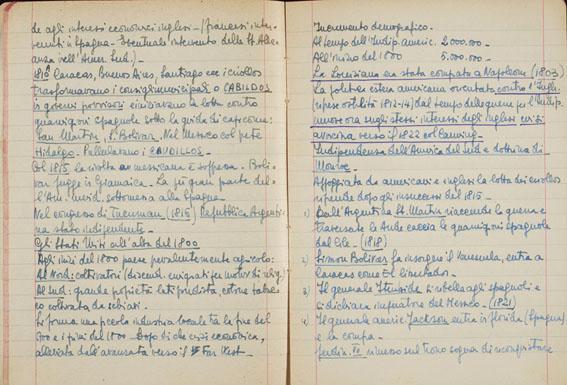 de agli interessi economici inglesi - (francesi inter-
venuti in Spagna - Eventuale intervento della St. Alle-
anza nell'Amer. Sud.) -
1810 Caracas, Buenos Aires, Santiago ecc i criollos
trasformavano i consigli municipali o CABILDOS
in governi provvisori e iniziavano la lotta contro
guarnigioni spagnole sotto la guida di capi come:
San Martin, S. Bolivar. Nel Messico col prete
Hidalgo. Pullulavano i CAUDILLOS.
Col 1815 la rivolta messicana è soffocata. Boli-
var fugge in Giamaica. La più gran parte del-
l'Am. merid. sottomessa alla Spagna.
Nel congresso di Tucuman (1815) Repubblica Argenti-
na stato indipendente -
Gli Stati Uniti all'alba del 1800
Agli inizi del 1800 paese prevalentemente agricolo:
Al Nord: coltivatori (discend. emigrati per motivi di relig.)
Al Sud: grande proprietà latifondista, cotone tabac-
co coltivata da schiavi.
Si forma una piccola industria locale tra la fine del
700 e i primi del 1800. Dopo di che crisi economica,
alleviata dall'avanzata verso il Far West.
Incremento demografico.
Al tempo dell'Indip. americ. 2.000.000 -
All'inizio del 1800 5.000.000 -
La Louisiana era stata comprata a Napoleone (1803)
La politica estera americana orientata contro l'Ingh.
(riprese ostilità 1812-14) dal tempo della guerra per l'Indip.
ancora sugli stessi interessi degli inglesi cui si
avvicina verso il 1822 col Canning -
Indipendenza dell'America del Sud e dottrina di
Monroe -
Appoggiata da americani e inglesi la lotta dei criollos
riprende dopo gli insuccessi del 1815 -
1) Dall'Argentina St. Martin riaccende la guerra e
traversate le Ande caccia le guarnigioni spagnole
dal Cile - (1818)
2) Simon Bolivar fa insorgere il Venezuela, entra a
Caracas come El libertador.
3) Il generale Iturbide si ribella agli spagnoli e
si dichiara imperatore del Messico - (1821)
4) Il generale americ. Jackson entra in Florida (Spagna)
e la compra.
Ferdin. VII rimesso sul trono sogna di riconquistare